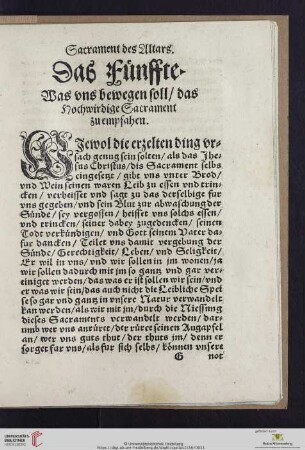 Sacrament des Altars.
Das Fünffte.
Was vns bewegen soll / das
Hochwirdige Sacrament
zu empfahen.
WJewol die erzelten ding vr-
sach genug sein solten / als das Jhe-
sus Christus / dis Sacrament selbs
eingesetzt / gibt vns vnter Brod /
vnd Wein seinen waren Leib zu essen vnd trin-
cken / verheisset vnd sagt zu das derselbige für
vns gegeben / vnd sein Blut zur abwaschung der
Sünde / sey vergossen / heisset vns solchs essen /
vnd trincken / seiner dabey zugedencken / seinen
Todt verkündigen / vnd Gott seinen Vater da-
fur dancken / Teilet vns damit vergebung der
Sünde / Gerechtigkeit / Leben / vnd Seligkeit /
Er wil in vns / vnd wir sollen in im wonen / ja
wir sollen dadurch mit jm so gantz vnd gar ver-
einiget werden / das was er ist sollen wir sein / vnd
er was wir sein / das auch nicht die Leibliche Spei
se so gar vnd gantz in vnsere Natur verwandelt
kan werden / als wir mit jm / durch die Niessung
dieses Sacraments verwandelt werden / dar-
umb wer vns anrüret / der rüret seinen Augapfel
an / wer vns guts thut / der thuts jm / denn er
sorget fur vns / als fur sich selbs / können vnsere
G not
UNIVERSITÄTS-
BIBLIOTHEK
HEIDELBERG
© Universitätsbibliothek Heidelberg